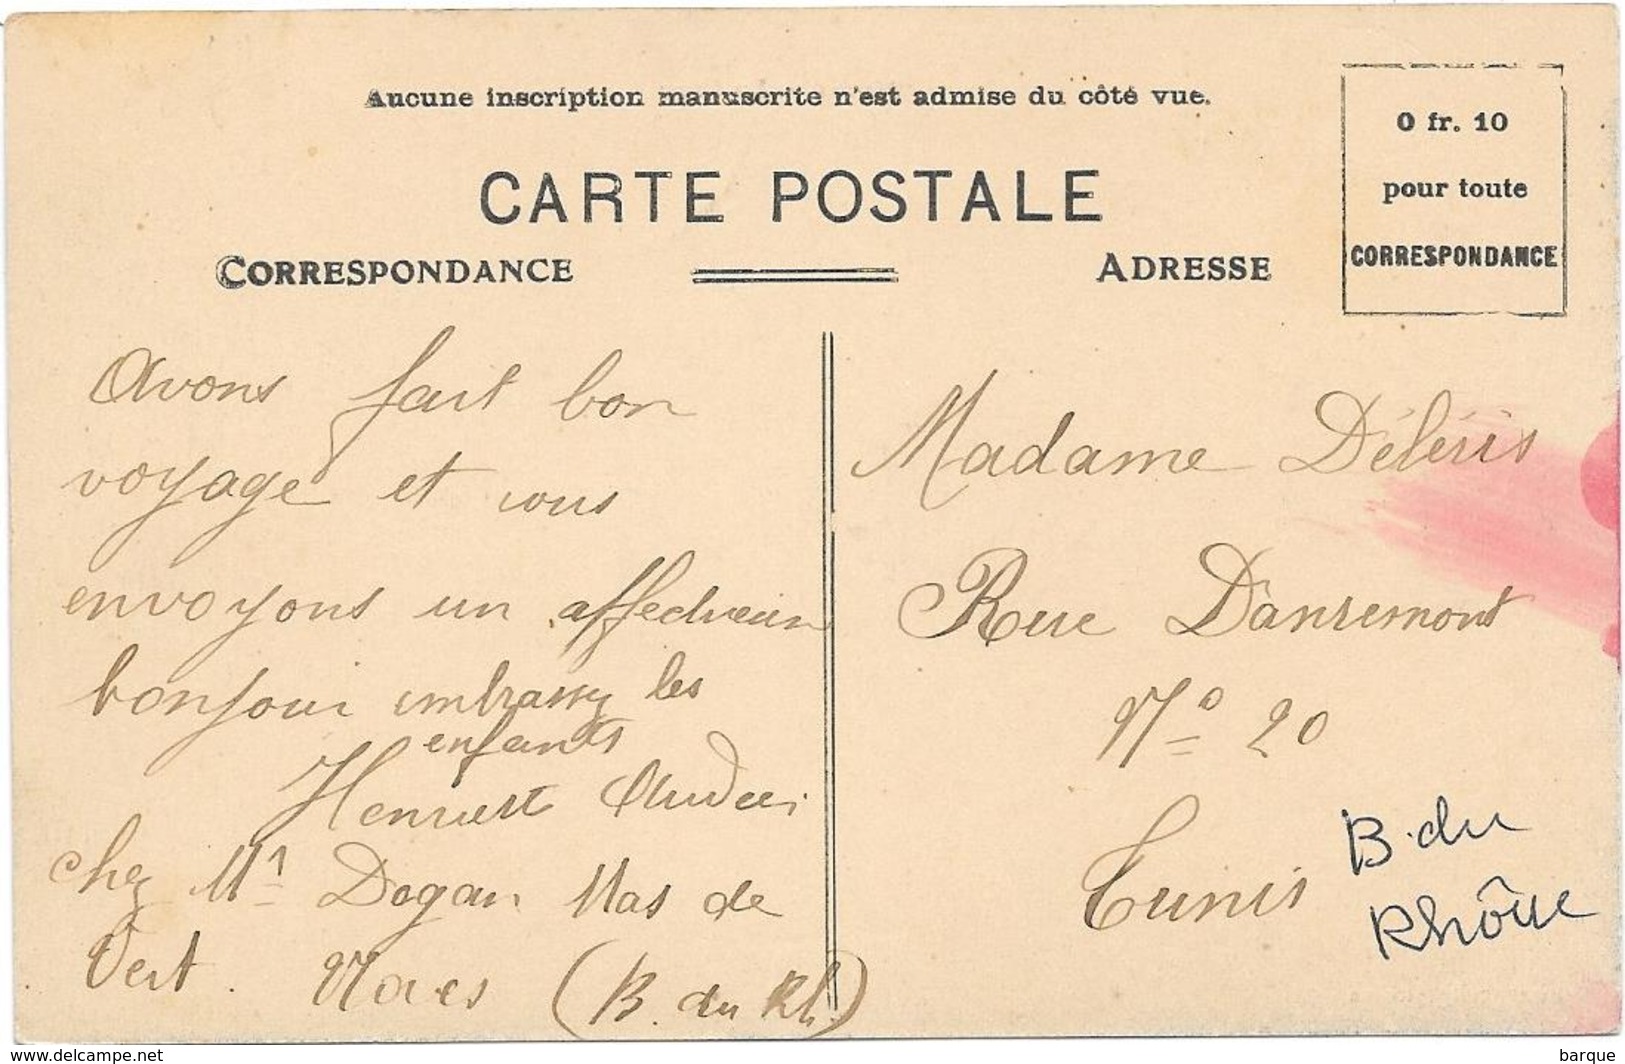 Aucune inscription manuscrite n'est admise du côté vue.
O fr. 10
pour toute
CORRESPONDANCE
CARTE POSTALE
CORRESPONDANCE
ADRESSE
Avons fait bon
voyage et vous
envoyons un
bonjour les
enfants
Chez Mr Dogan Mas de
Vert. (B. du Rh.)
Madame
Rue Danremont
No 20
Tunis
B. du
Rhône
www.delcampe.net
barque